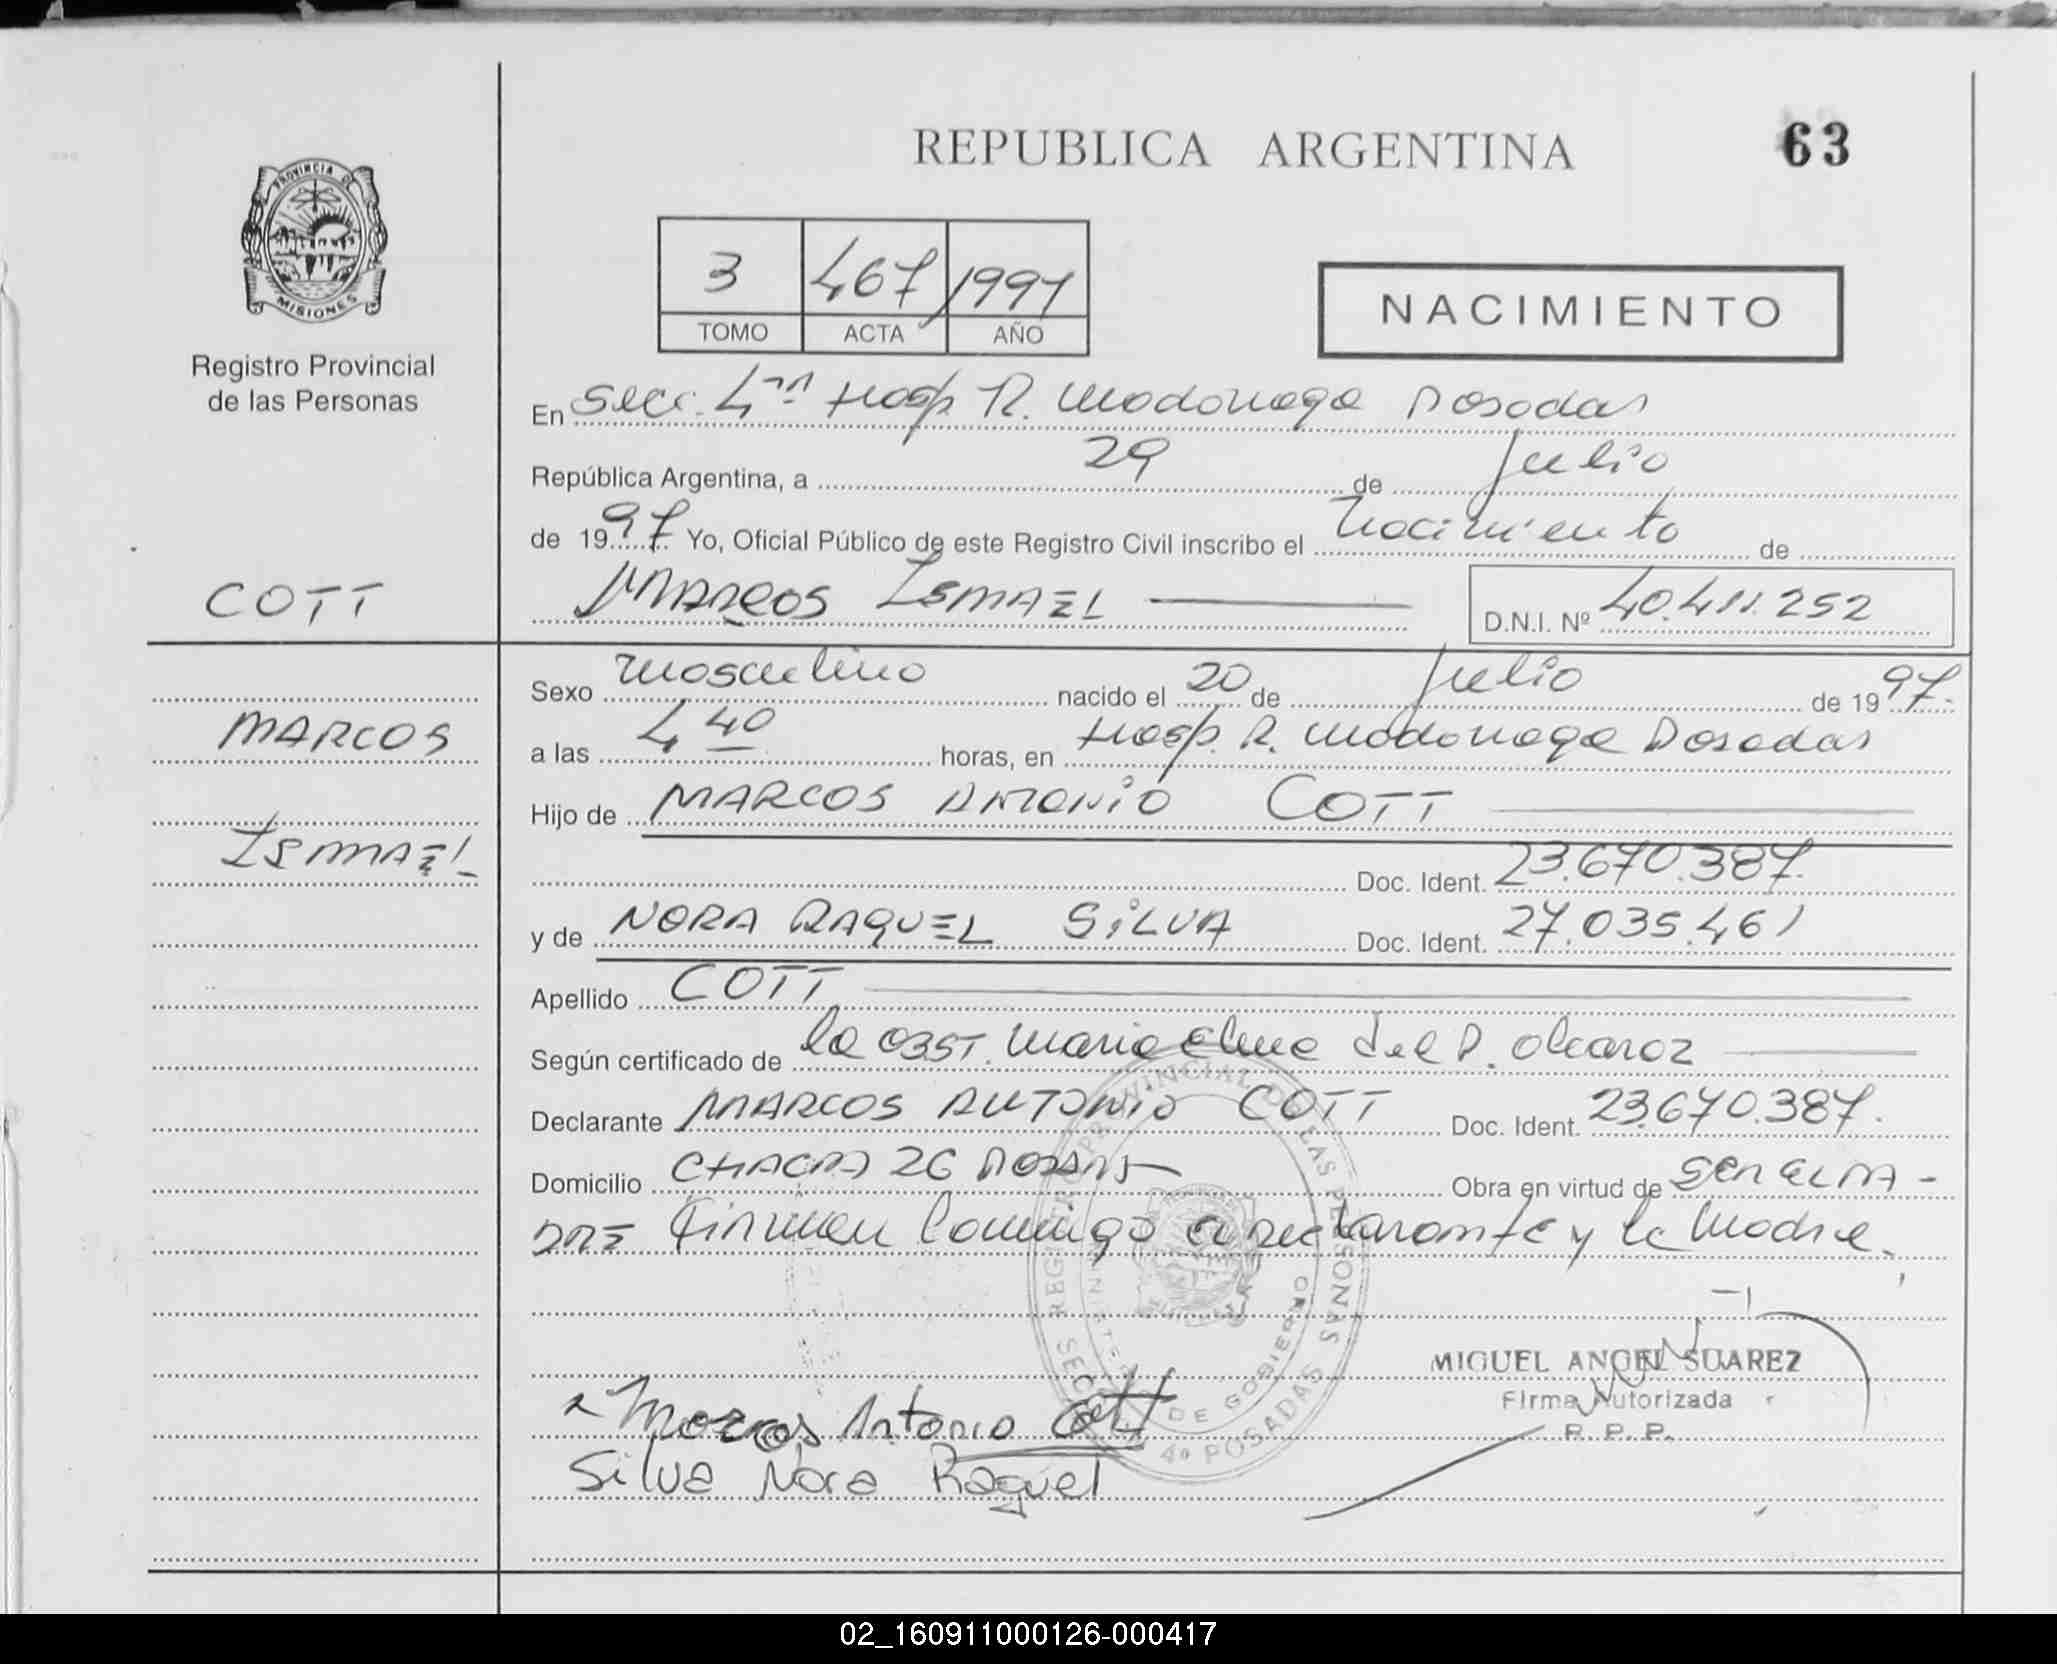 REPUBLICA ARGENTINA
63
PROVINCIA DE
MISIONES
Registro Provincial
de las Personas
3 467 1997
TOMO ACTA AÑO
NACIMIENTO
En Secc. 4ta Hosp R. Madonaga Posadas
República Argentina, a 29 de Julio
de 1997 Yo, Oficial Público de este Registro Civil inscribo el nacimiento de
COTT
MARCOS ISMAEL
D.N.I. Nº 40.411.252
Sexo masculino nacido el 20 de Julio de 1997.
MARCOS
a las 4 40 horas, en Hosp. R. Madonaga Posadas
Hijo de MARCOS ANTONIO COTT
ISMAEL
Doc. Ident. 23.670.387.
y de NORA RAQUEL SILVA Doc. Ident. 27.035.461
Apellido COTT
Según certificado de la OBST. Maria Elena del P. Alcaroz
Declarante MARCOS ANTONIO COTT Doc. Ident. 23.670.387.
Domicilio CHACRA 26 Obra en virtud de SER EL PA-
DRE Firman conmigo el declarante y la madre.
REGISTRO PROVINCIAL DE LAS PERSONAS
DE GOBIERNO
4º POSADAS
MIGUEL ANGEL SUAREZ
Firma Autorizada
R. P. P.
Marcos Antonio Cott
Silva Nora Raquel
02_160911000126-000417